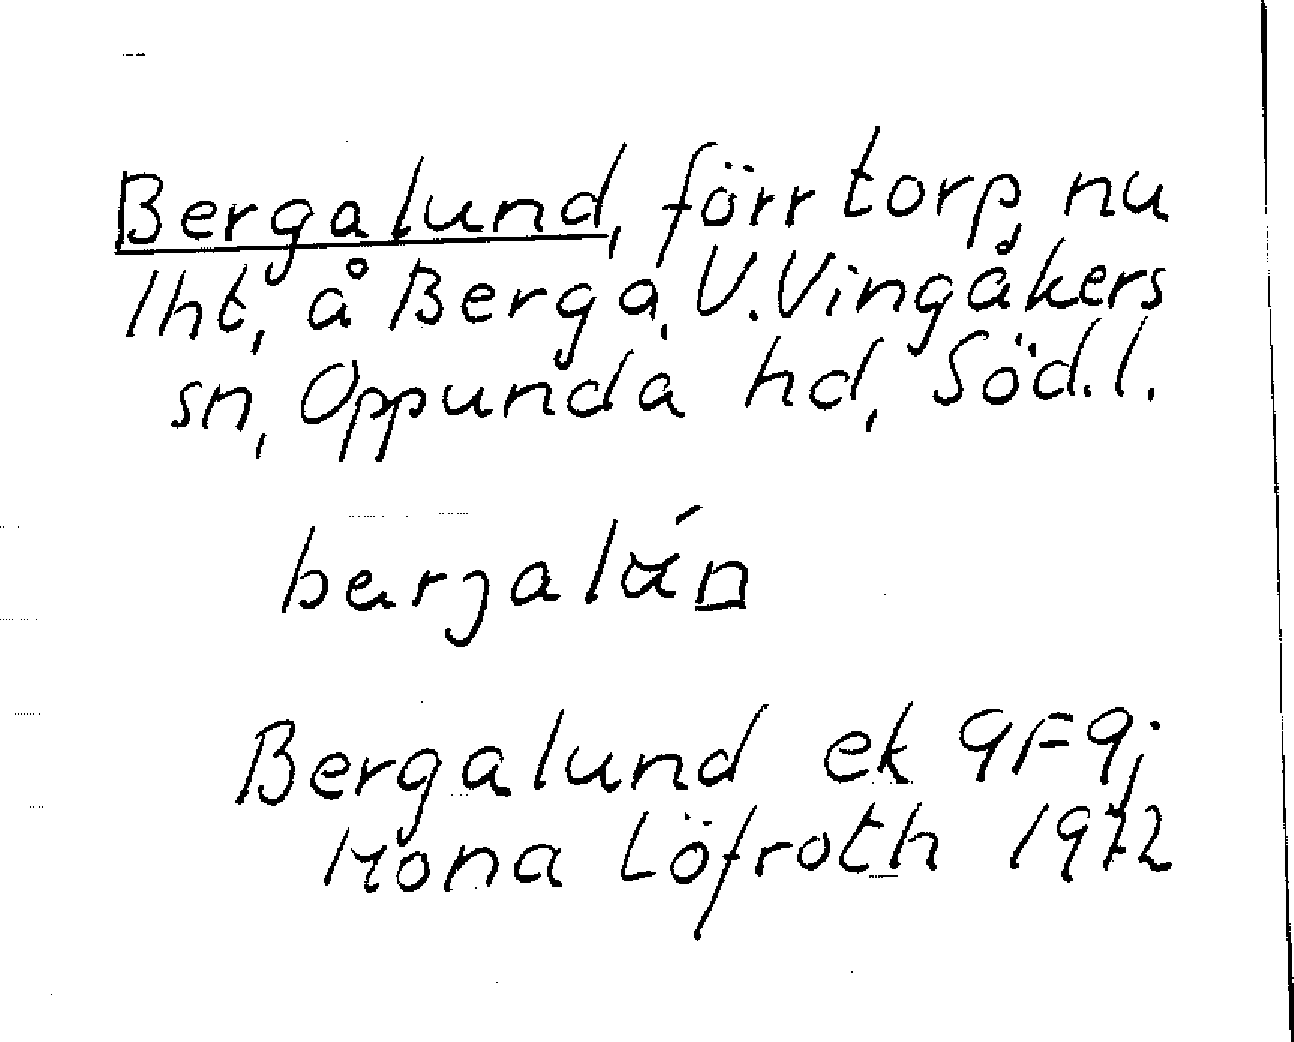 Bergalund, förr torp, nu
lht, å Berga, V. Vingåkers
sn, Oppunda hd, Söd. l.
Bergalund ek 9F9j
Mona Löfroth 1972